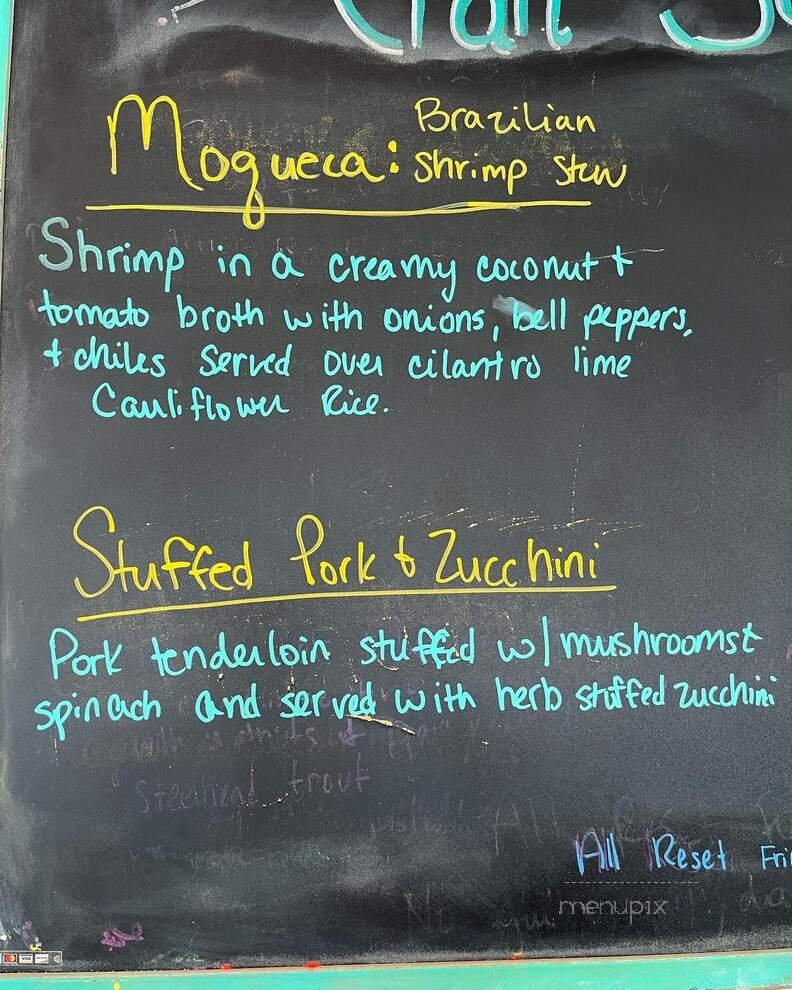 Moqueca: Brazilian
Shrimp Stew
Shrimp in a creamy coconut +
tomato broth with onions, bell peppers,
+ chiles Served over cilantro lime
Cauliflower Rice.
Stuffed Pork + Zucchini
Pork tenderloin stuffed w/ mushrooms +
spinach and served with herb stuffed zucchini
Steelhead trout
All Reset Fri
menupix